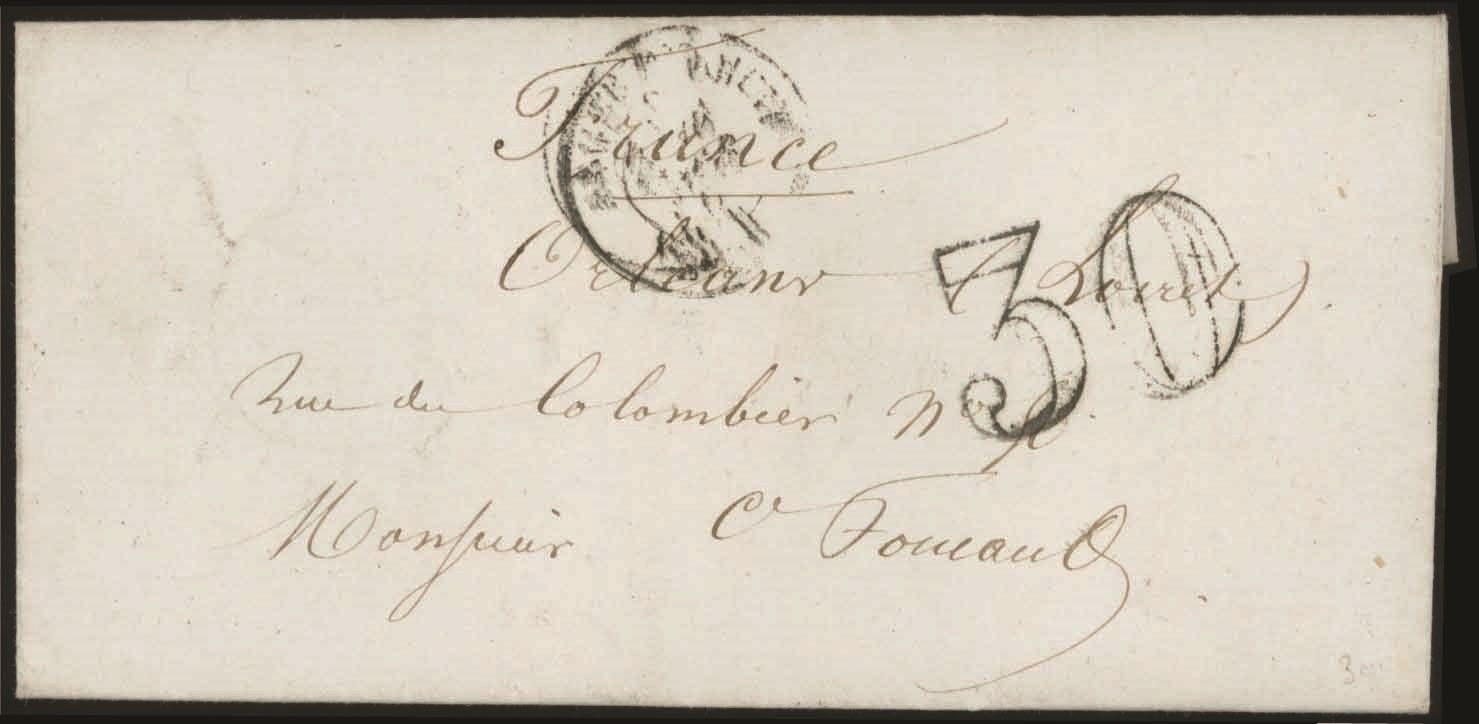 France
Orléans (Loiret).
30
Rue du Colombier N°
Monsieur Cr Foucault
3